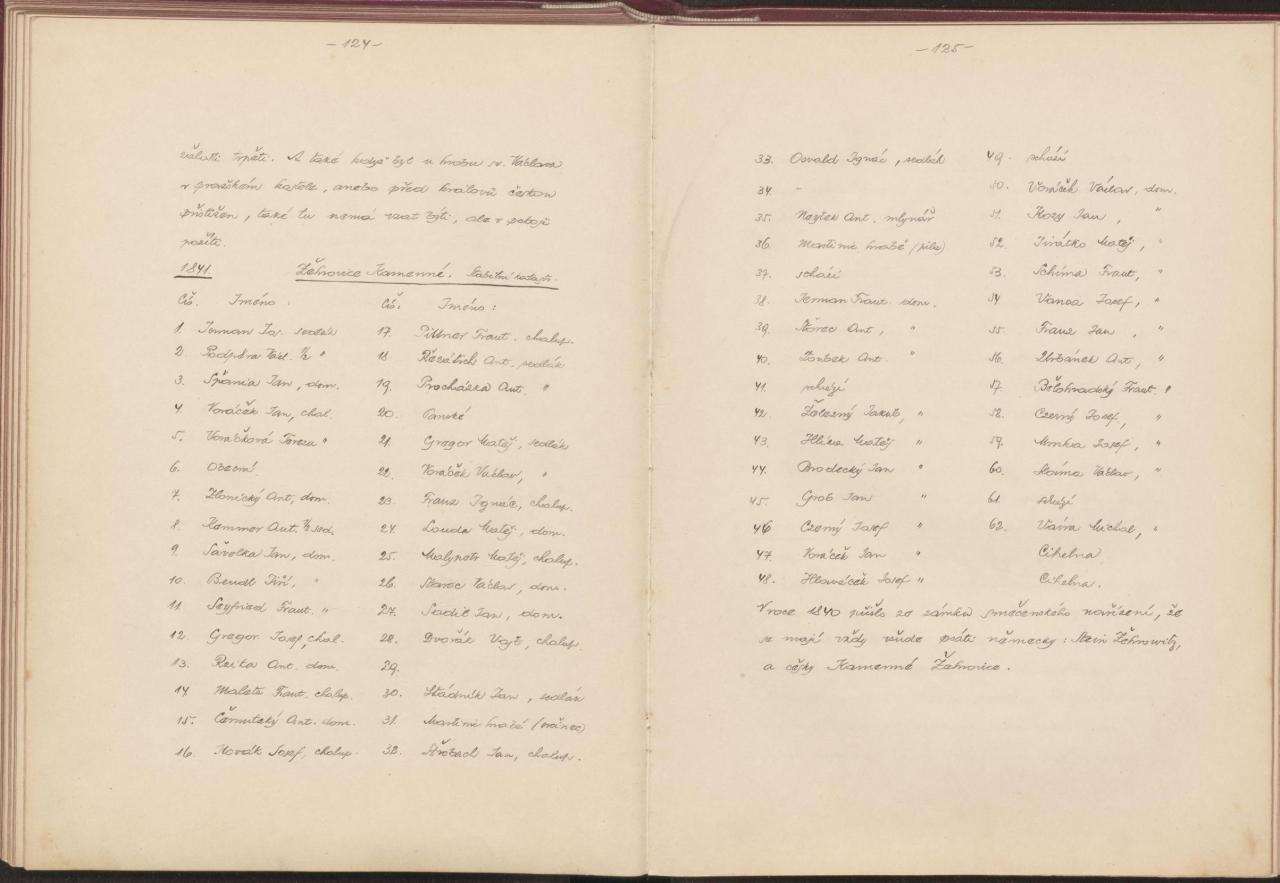 - 124 -
trpěti. A také když byl u hrobu sv. Václava
v pražském kostele, anebo před králová českou
přistižen, také tu nemá vzat býti, ale v pokoji
1841. Žehrovice Kamenné. katastr.
Čís. Jméno:
1. Jerman Jos. sedlák
2. Podpěra Václ. 1/2 "
3. Jan, dom.
4. Voráček Jan, chal.
5. Voráčková Tereza "
6. Obecní
7. Zlonický Ant. dom.
8. Kommer Ant. 1/2 sed.
9. Savolka Jan, dom.
10. Bendl Jiří, "
11. Seyfried Frant. "
12. Gregor Josef, chal.
13. Ant. dom.
14. Maleta Frant. chalup.
15. Ant. dom.
16. Novák Josef, chalup.
Čís. Jméno:
17. Pittner Frant. chalup.
18. Řezátch Ant. sedlák
19. Procházka Ant. "
20. Panské
21. Gregor Matěj, sedlák
22. Voráček Václav, "
23. Franz Ignác, chalup.
24. Louda Matěj, dom.
25. Malypetr Matěj, chalup.
26. Starec Václav, dom.
27. Sadil Jan, dom.
28. Dvořák Vojt, chalup.
29.
30. Stádník Jan, sedlák
31. Martinic hrabě
32. Jan, chalup.
- 125 -
33. Osvald Ignác, sedlák
34. -
35. Ant. mlynář
36. Martinic hrabě (pila)
37. schází
38. Jerman Frant. dom.
39. Ant, "
40. Zoubek Ant. "
41. schází
42. Železný Jakub, "
43. Hlina Matěj "
44. Brodecký Jan "
45. Grob Jan "
46 Czerný Josef "
47. Voráček Jan "
48. Hlowáček Josef "
49. schází
50. Voráček Václav, dom.
51. Kozy Jan, "
52. Jirátko Matěj, "
53. Schima Frant, "
54. Vanca Josef, "
55. Franz Jan, "
56. Urbánek Ant, "
57. Bělohradský Frant. "
58. Czerný Josef, "
59. Josef, "
60. Václav, "
61. schází
62. Vávra Michal, "
Cihelna
Cihelna.
V roce 1840 přišlo ze zámku smečenského nařízení, že
se mají vždy všude psáti německy: Stein Žehrowitz,
a česky Kamenné Žehrovice.